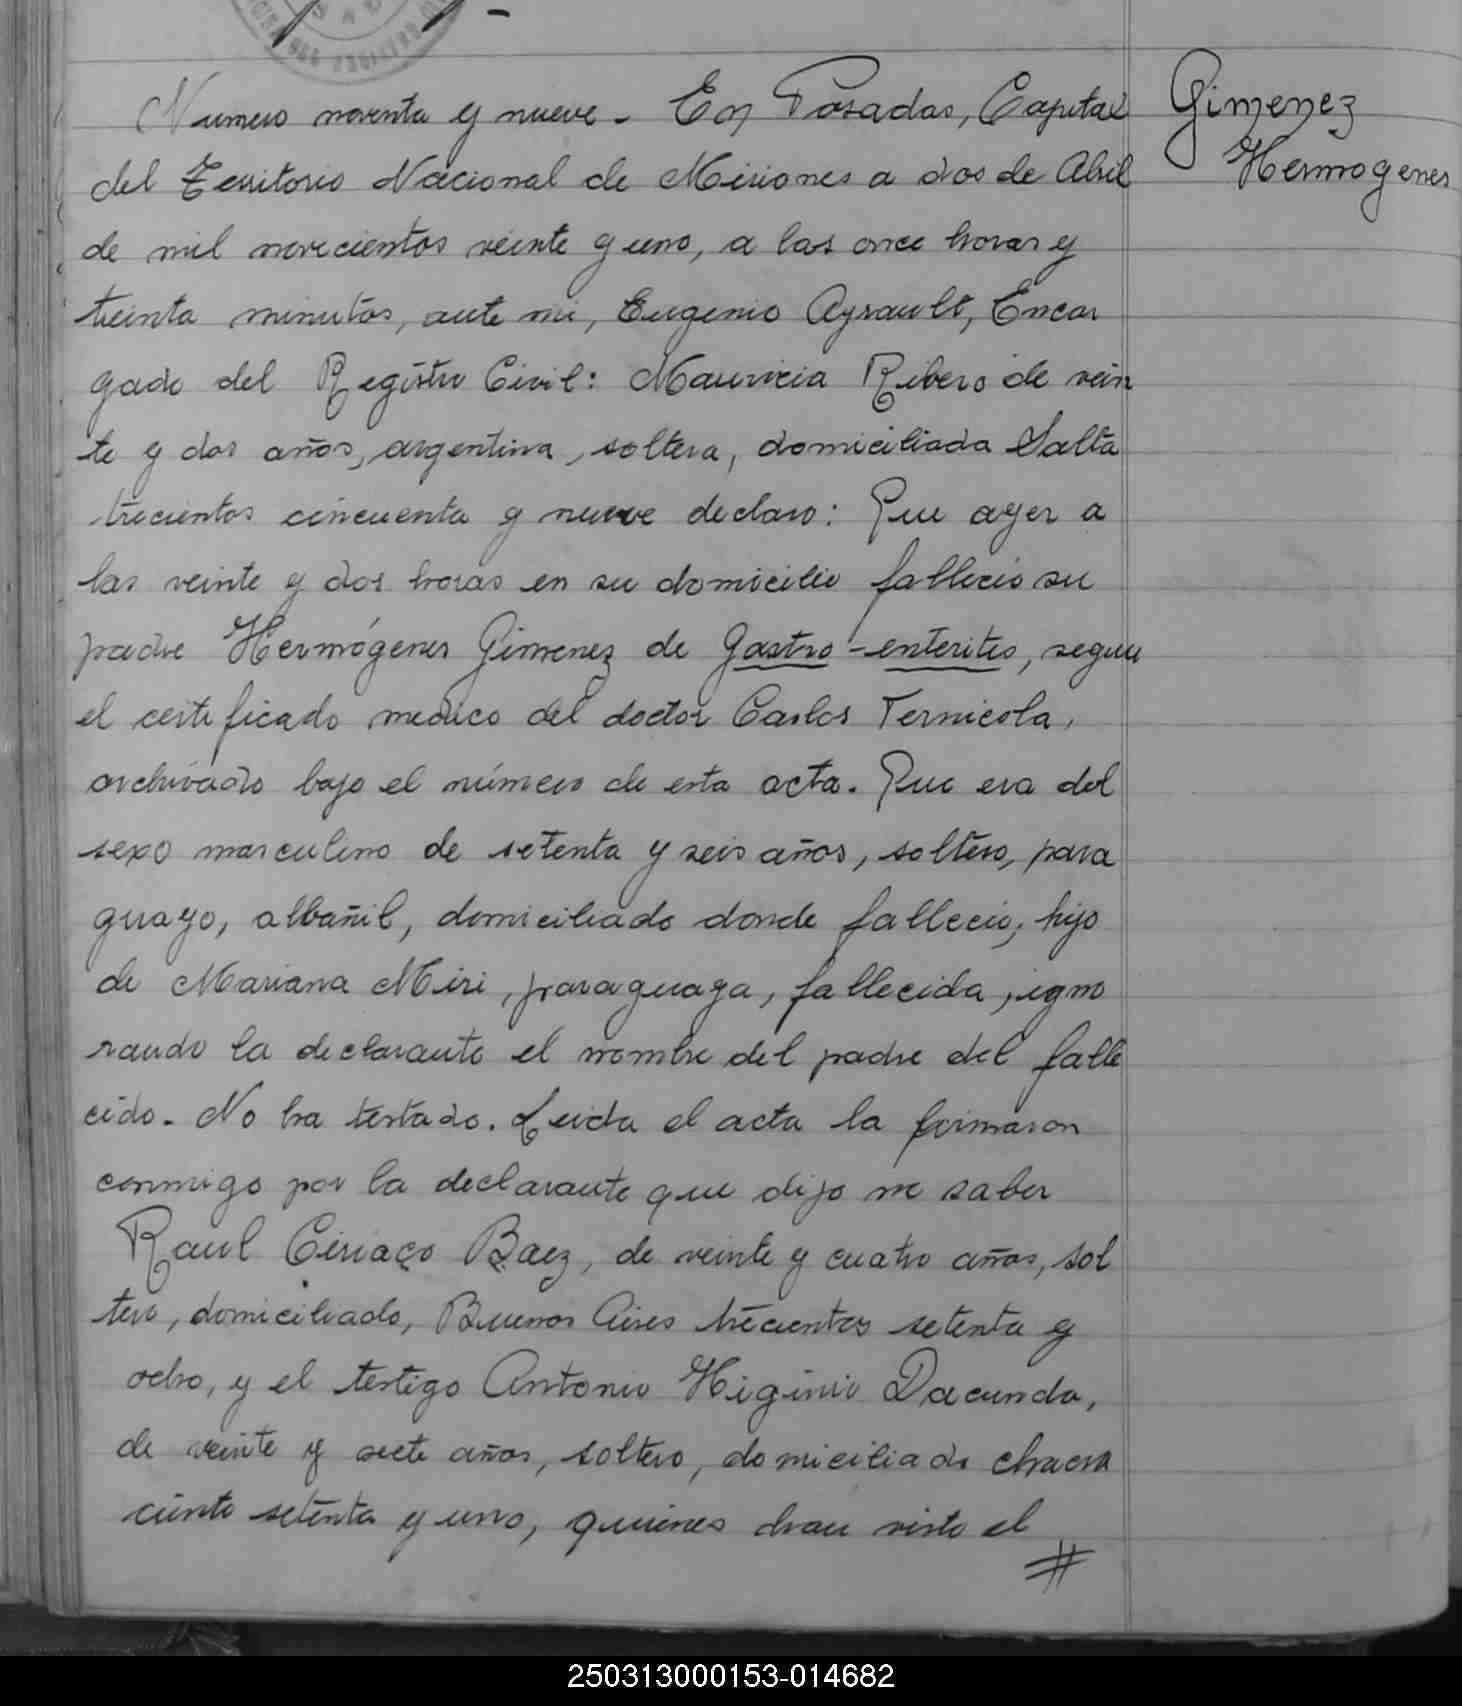 Numero noventa y nueve - En Posadas, Capital
Gimenez
Hermogenes
del Territorio Nacional de Misiones a dos de Abril
de mil novecientos veinte y uno, a las once horas y
treinta minutos, ante mi, Eugenio Ayrault, Encar
gado del Registro Civil: Mauricia Ribero de vein
te y dos años, argentina, soltera, domiciliada Salta
trecientos cincuenta y nueve declaro: Que ayer a
las veinte y dos horas en su domicilio fallecio su
padre Hermógenes Gimenez de Gastro-enteritis, segun
el certificado medico del doctor Carlos Ternicola,
archivado bajo el número de esta acta. Que era del
sexo masculino de setenta y seis años, soltero, para
guayo, albañil, domiciliado donde fallecio, hijo
de Mariana Miri, paraguaya, fallecida, igno
rando la declarante el nombre del padre del falle
cido. No ha testado. Leida el acta la firmaron
conmigo por la declarante que dijo no saber
Raul Ciriaco Baez, de veinte y cuatro años, sol
tero, domiciliado, Buenos Aires trecientos setenta y
ocho, y el testigo Antonio Higinio Dacunda,
de veinte y siete años, soltero, domiciliado chacra
ciento setenta y uno, quienes han visto el
#
250313000153-014682